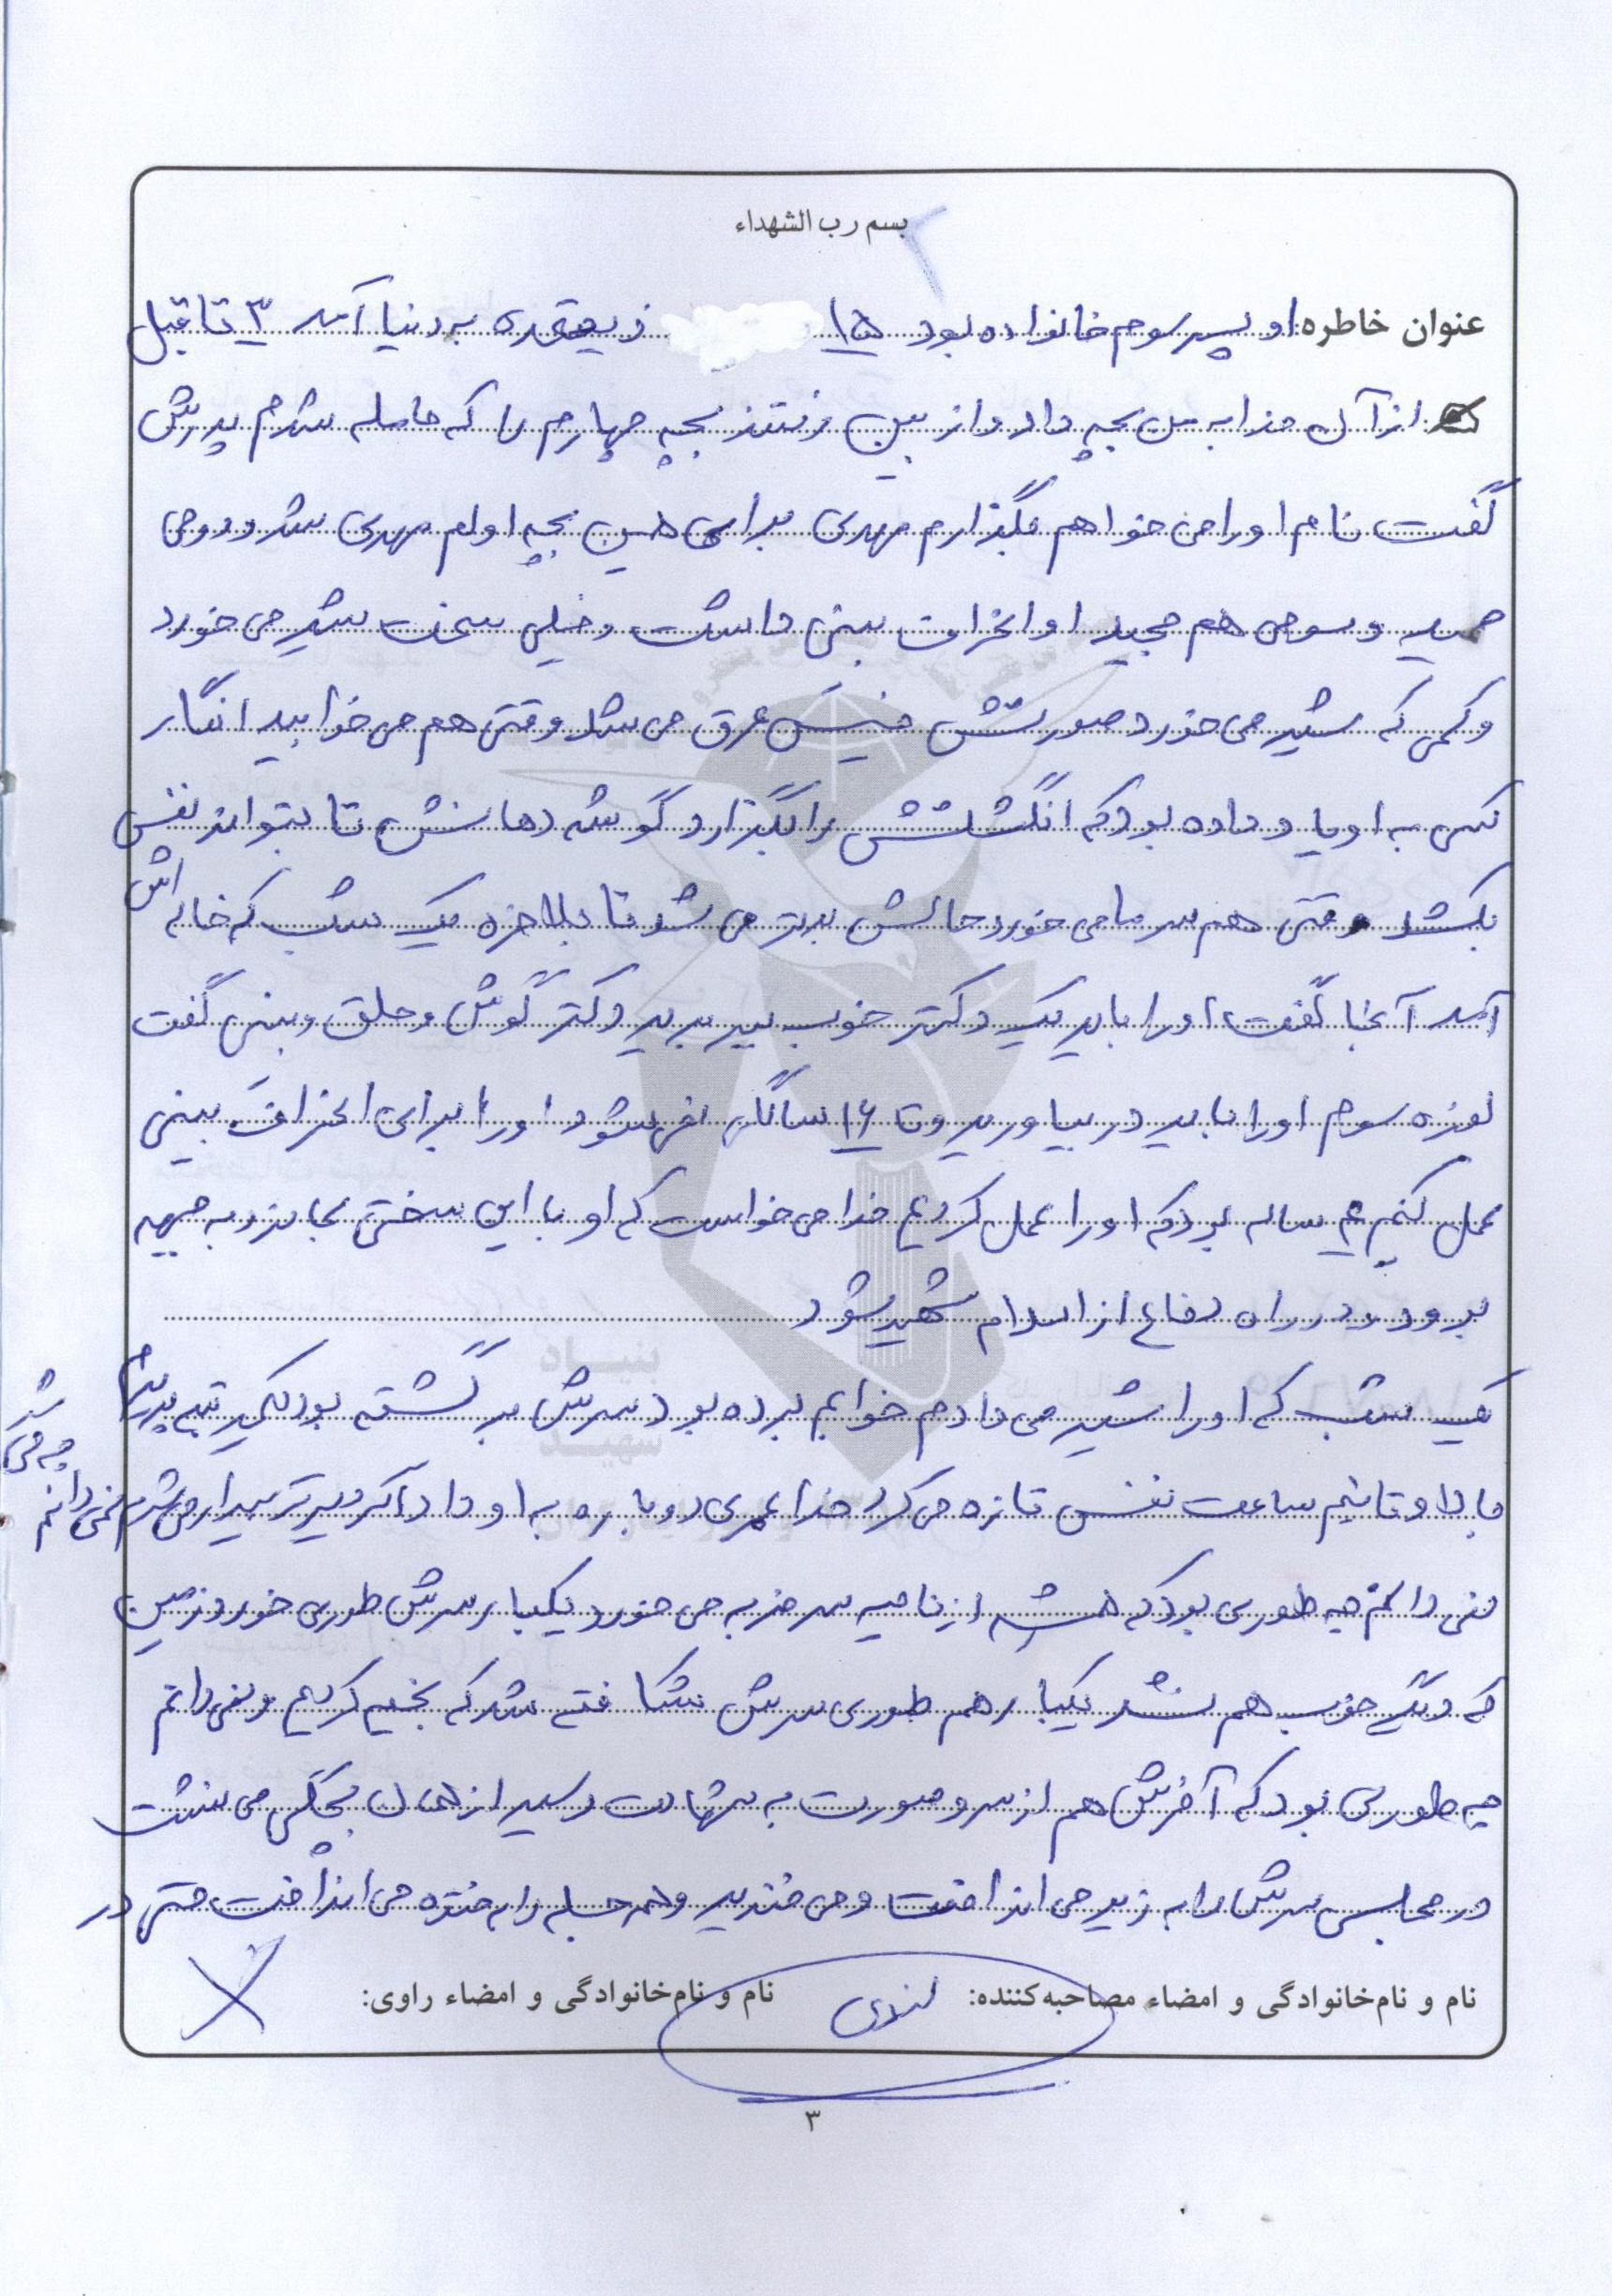 بسم رب الشهداء
۲
عنوان خاطره: او پسر سوم خانواده بود ۱۵ ذیعقده به دنیا آمد ۳ تا قبل
از آن خدا به من بچه داد و از بین رفتند بچه چهارم را که حامله شدم پدرش
گفت نام او را می خواهم بگذارم مهدی برای همین بچه اولم مهدی شد دومی
حمید و سومی هم مجید او انحراف بینی داشت و خیلی سخت شیر می خورد
و کمی که شیر می خورد صورتش خیس عرق می شد وقتی هم می خوابید انگار
کسی به او یاد داده بود که انگشتش را بگذارد گوشه دهانش تا بتواند نفس
بکشد وقتی هم سرما می خورد حالش بدتر می شد تا بلاخره یک شب که خاله اش
آمد آنجا گفت او را باید یک دکتر خوب ببرید دکتر گوش و حلق و بینی گفت
لوزه سوم او را باید در بیاورید و تا ۱۶ سالگی نمی شود او را برای انحراف بینی
عمل کنیم ۴ ساله بود که او را عمل کردیم خدا می خواست که او با این سختی بماند و به جبهه
برود و در راه دفاع از اسلام شهید شود
یک شب که او را شیر می دادم خوابم برده بود سرش برگشته بود یکمرتبه پریدم
بالا و تا نیم ساعت نفس تازه می کرد خدا عمری دوباره به او داد اگر دیرتر بیدار می شدم نمی دانم
چه می شد
نمی دانم چه طوری بود که همیشه از ناحیه سر ضربه می خورد یکبار سرش طوری خورد زمین
که دیگر خوب هم نشد یکبار هم طوری سرش شکافته شد که بخیه کردیم و نمی دانم
چه طوری بود که آخرش هم از سر و صورت به شهادت رسید از همان بچگی می نشت
در مجلس سرش را به زیر می انداخت و می خندید و همه جلسه را به خنده می انداخت حتی در
نام و نام‌خانوادگی و امضاء مصاحبه‌کننده: نام و نام‌خانوادگی و امضاء راوی:
۳